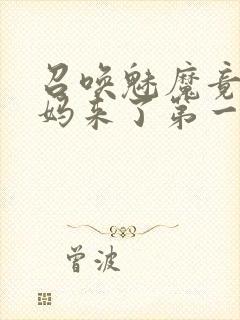 召唤魅魔竟
妈来了第一
曾波